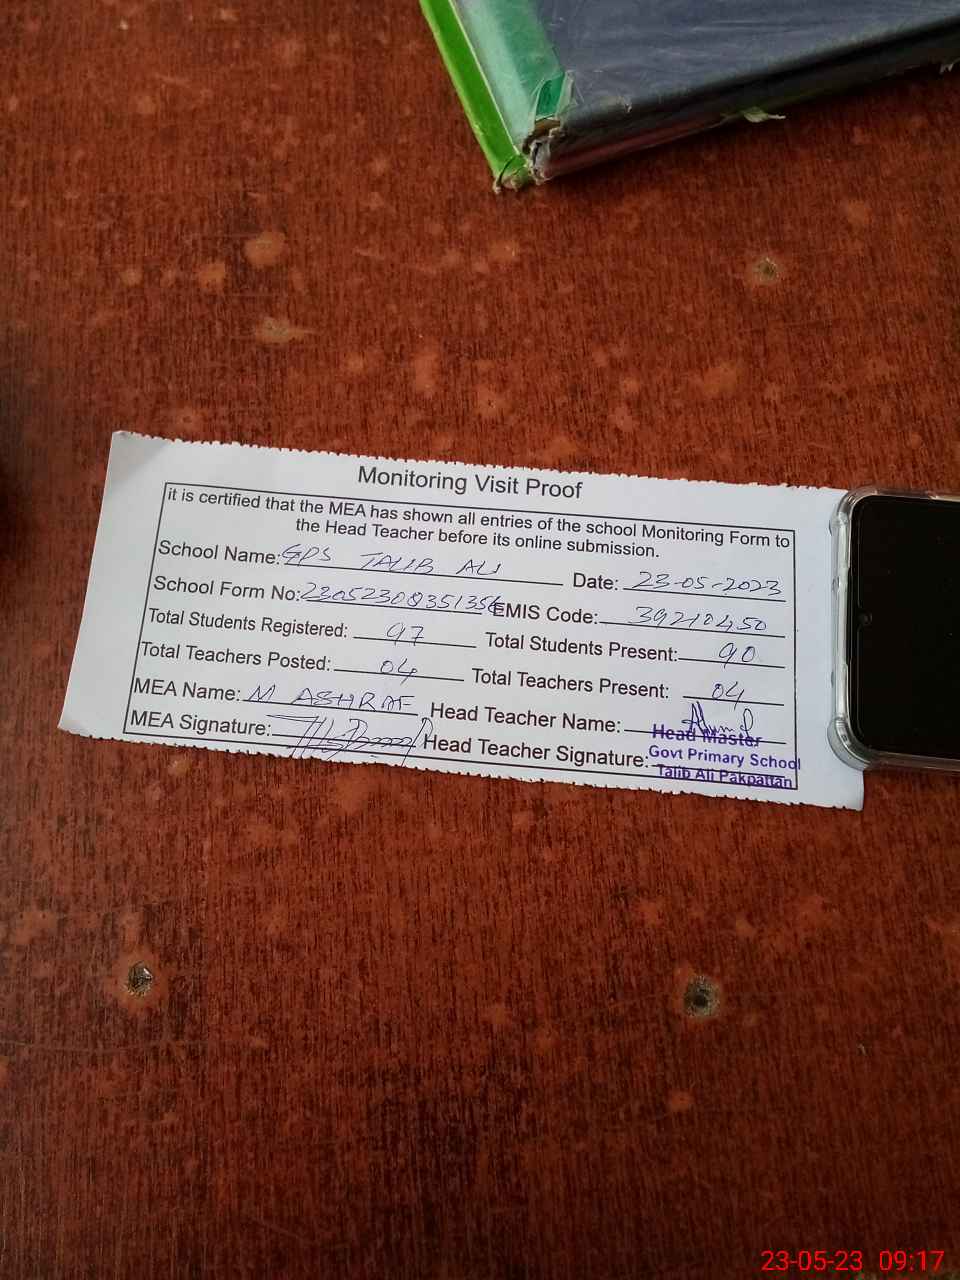 Monitoring Visit Proof
it is certified that the MEA has shown all entries of the school Monitoring Form to
the Head Teacher before its online submission.
School Name: GPS TALIB ALI Date: 23-05-2023
School Form No: EMIS Code: 39210450
Total Students Registered: 97 Total Students Present: 90
Total Teachers Posted: 04 Total Teachers Present: 04
MEA Name: M ASHRAF Head Teacher Name:
MEA Signature: Head Teacher Signature:
Head Master
Govt Primary School
Talib Ali Pakpattan
23-05-23 09:17